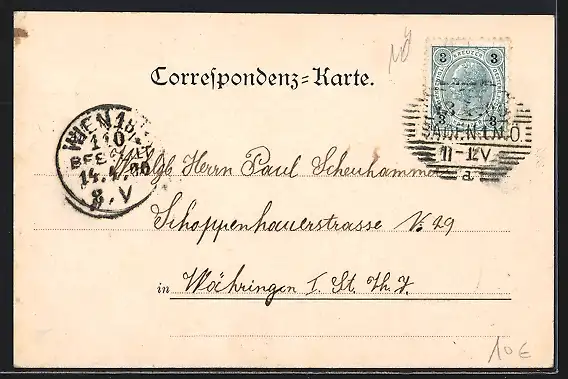 Correspondenz=Karte.
3 KREUZER 3
3 3
BADEN I.N.Ö
11-12V
a
WIEN 18/1
110
BESTELLT
14.4.
8.V
Wolgb Herrn Paul Scheuhammer
Schoppenhauerstrasse No 29
in Währingen I. St. Th. 7.
10€